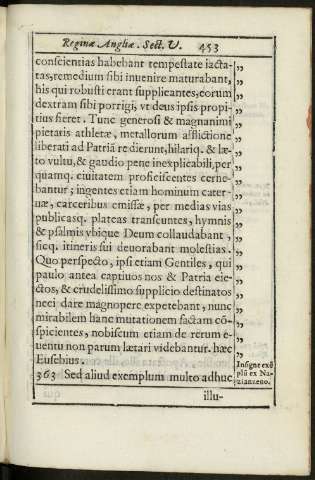 Reginæ Angliæ. Sect. V. 453
conscientias habebant tempestate iacta-
tas, remedium sibi inuenire maturabant,
his qui robusti erant supplicantes, eorum
dextram sibi porrigi, vt deus ipsis propi-
tius fieret. Tunc generosi & magnanimi
pietatis athletæ, metallorum afflictione
liberati ad Patriā redierunt, hilariq. & læ-
to vultu, & gaudio pene inexplicabili, per
quamq. ciuitatem proficiscentes cerne-
bantur; ingentes etiam hominum cater-
uæ, carceribus emissæ, per medias vias
publicasq. plateas transeuntes, hymnis
& psalmis vbique Deum collaudabant,
sicq. itineris sui deuorabant molestias.
Quo perspecto, ipsi etiam Gentiles, qui
paulo antea captiuos nos & Patria eie-
ctos, & crudelissimo supplicio destinatos
neci dare magnopere expetebant, nunc
mirabilem hanc mutationem factam cō-
spicientes, nobiscum etiam de rerum e-
uentu non parum lætari videbantur. hæc
Eusebius.
363 Sed aliud exemplum multo adhuc
Insigne exē
plū ex Na-
zianzeno.
illu-